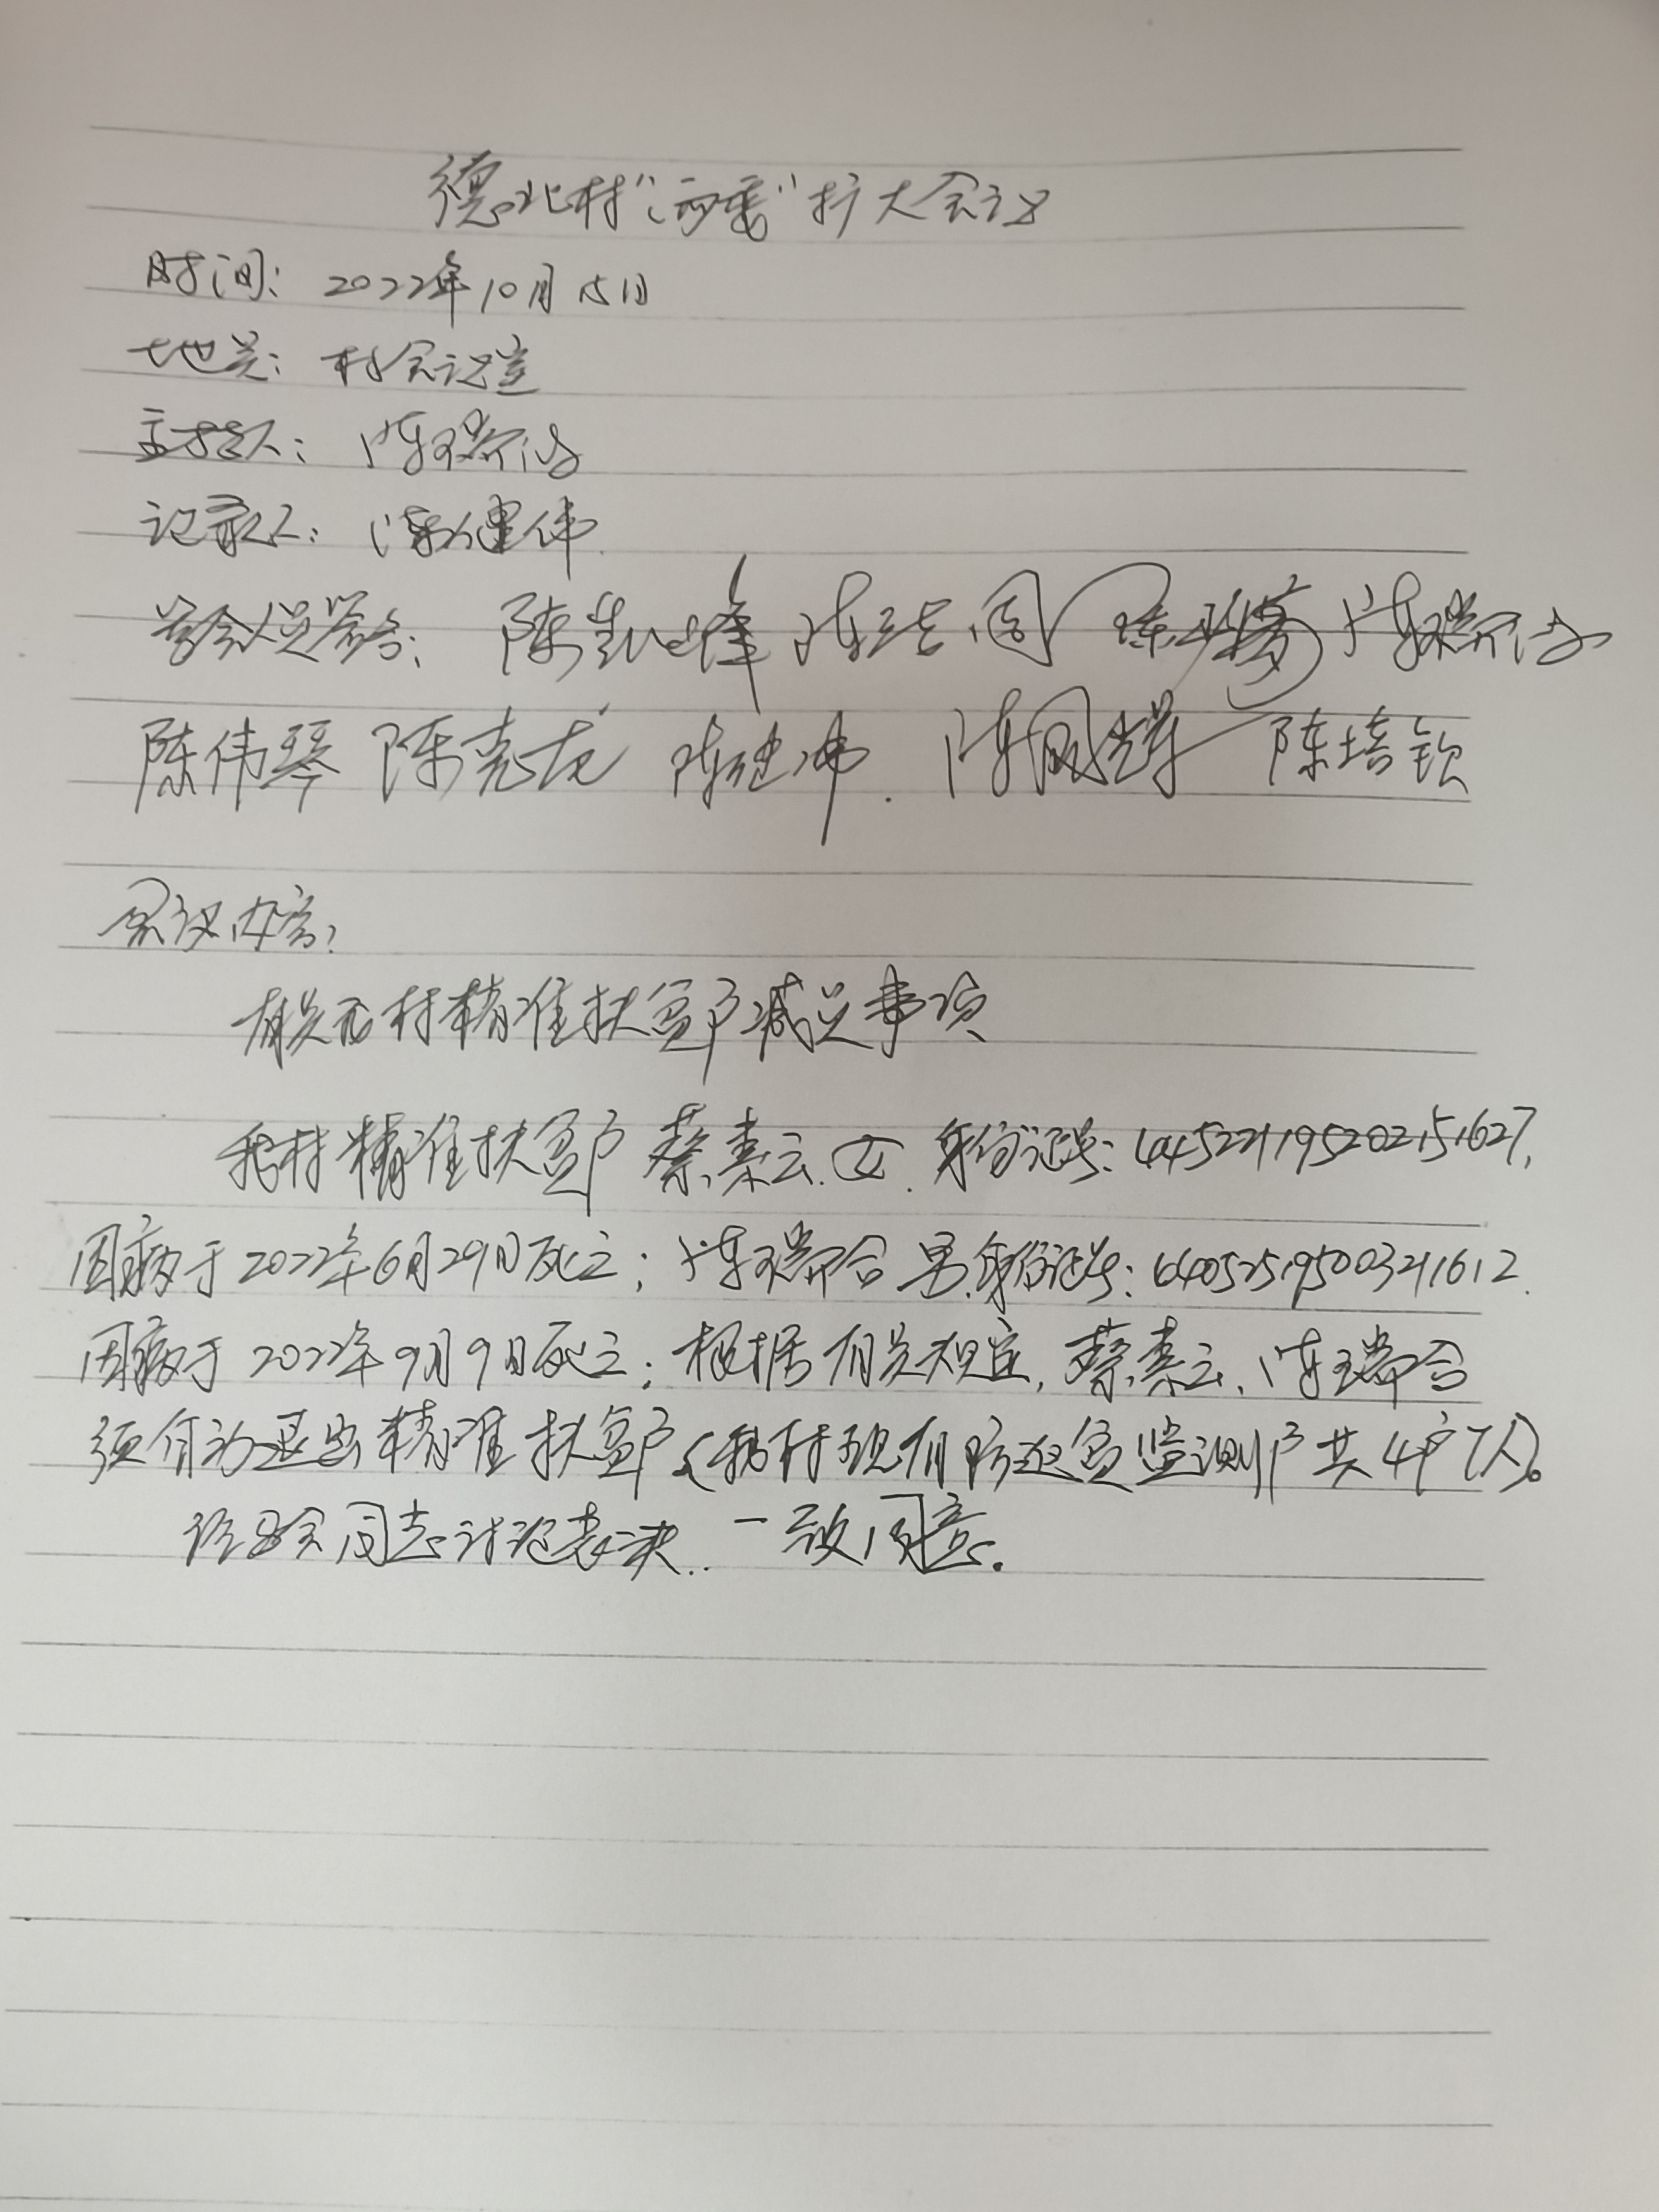 德北村“两委”扩大会议
时间：2022年10月15日
地点：村会议室
主持人：陈瑞洽
记录人：陈健伟
参会人员签名：陈凯峰 陈 陈 陈瑞洽
陈伟琴 陈亮龙 陈健伟 陈 陈培钦
会议内容：
有关我村精准扶贫户减员事项
我村精准扶贫户蔡素云，女，身份证号：445221195202151627，
因病于2022年6月29日死亡；陈瑞合 男，身份证号：440525195003211612
因病于2022年9月9日死亡；根据有关规定，蔡素云、陈瑞合
须作为退出精准扶贫户（我村现有防返贫监测户共4户7人）。
经与会同志讨论表决，一致同意。